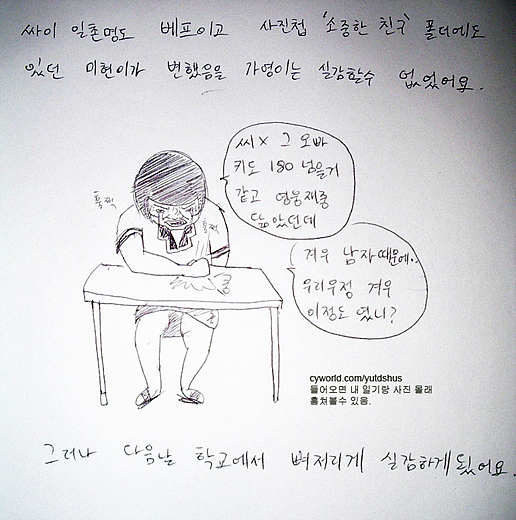 싸이 일촌명도 베프이고 사진첩 '소중한 친구' 폴더에도
있던 미현이가 변했음을 가영이는 실감할수 없었어요.
씨x 그 오빠
키도 180 넘을거
같고 영웅재중
닮았던데
훌쩍
훌쩍
겨우 남자때문에..
우리우정 겨우
이정도 였니?
cyworld.com/yutdshus
들어오면 내 일기랑 사진 몰래
훔쳐볼수 있음.
그러나 다음날 학교에서 뼈저리게 실감하게 됬어요.